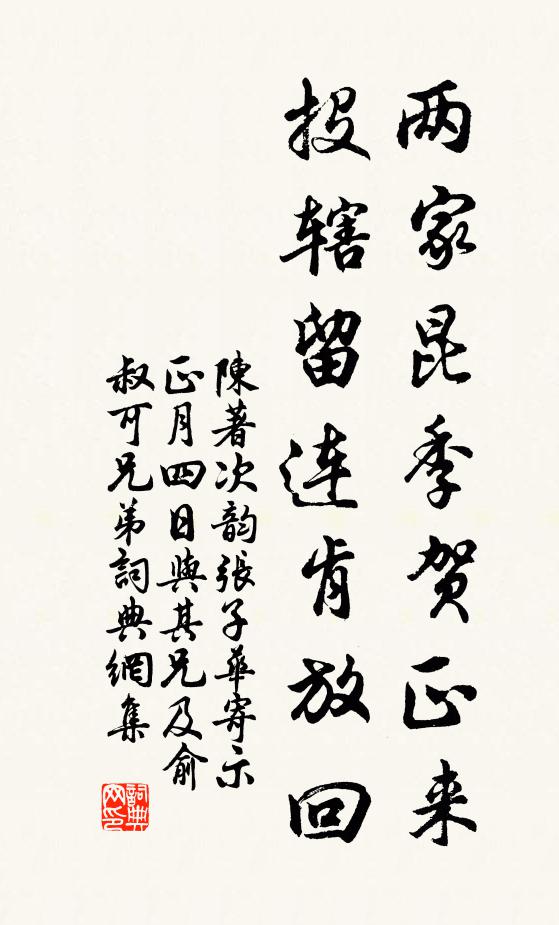 两家昆季贺正来
投辖留连肯放回
陳著次韵張子華寄示
正月四日與其兄及俞
叔可兄弟詞典網集
詞典
网印